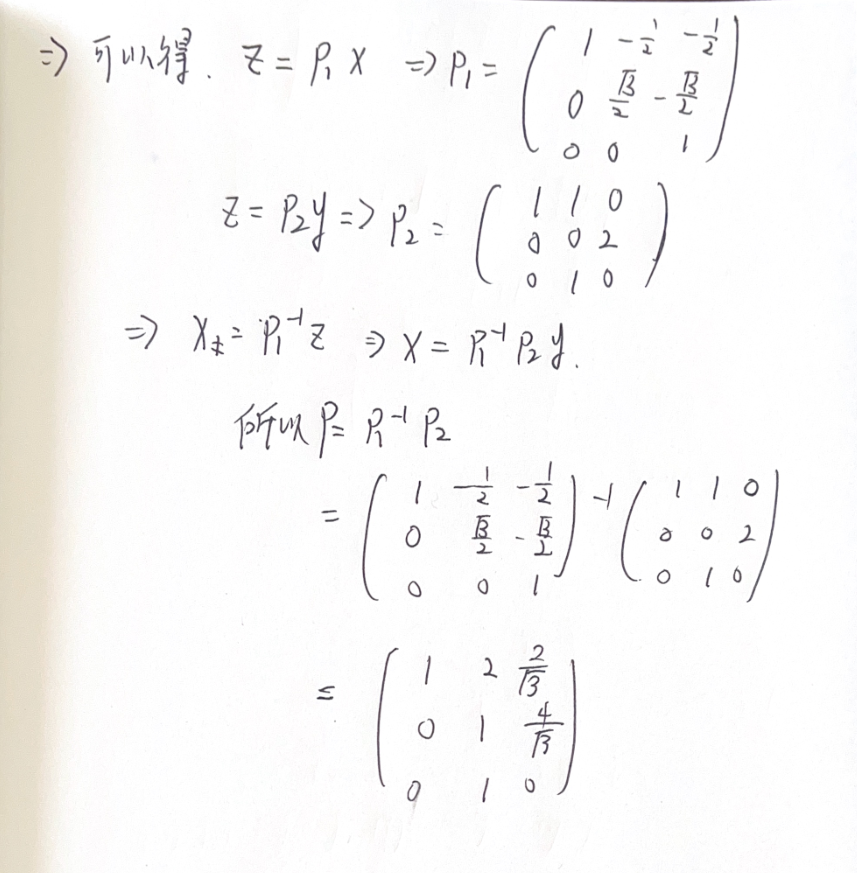 ⇒ 可以得. Z = P₁ X ⇒ P₁ = ( 1 -1/2 -1/2
0 √3/2 -√3/2
0 0 1 )
Z = P₂y ⇒ P₂ = ( 1 1 0
0 0 2
0 1 0 )
⇒ X = P₁⁻¹ Z ⇒ X = P₁⁻¹ P₂ y.
所以 P = P₁⁻¹ P₂
= ( 1 -1/2 -1/2
0 √3/2 -√3/2
0 0 1 )⁻¹ ( 1 1 0
0 0 2
0 1 0 )
= ( 1 2 2/√3
0 1 4/√3
0 1 0 )